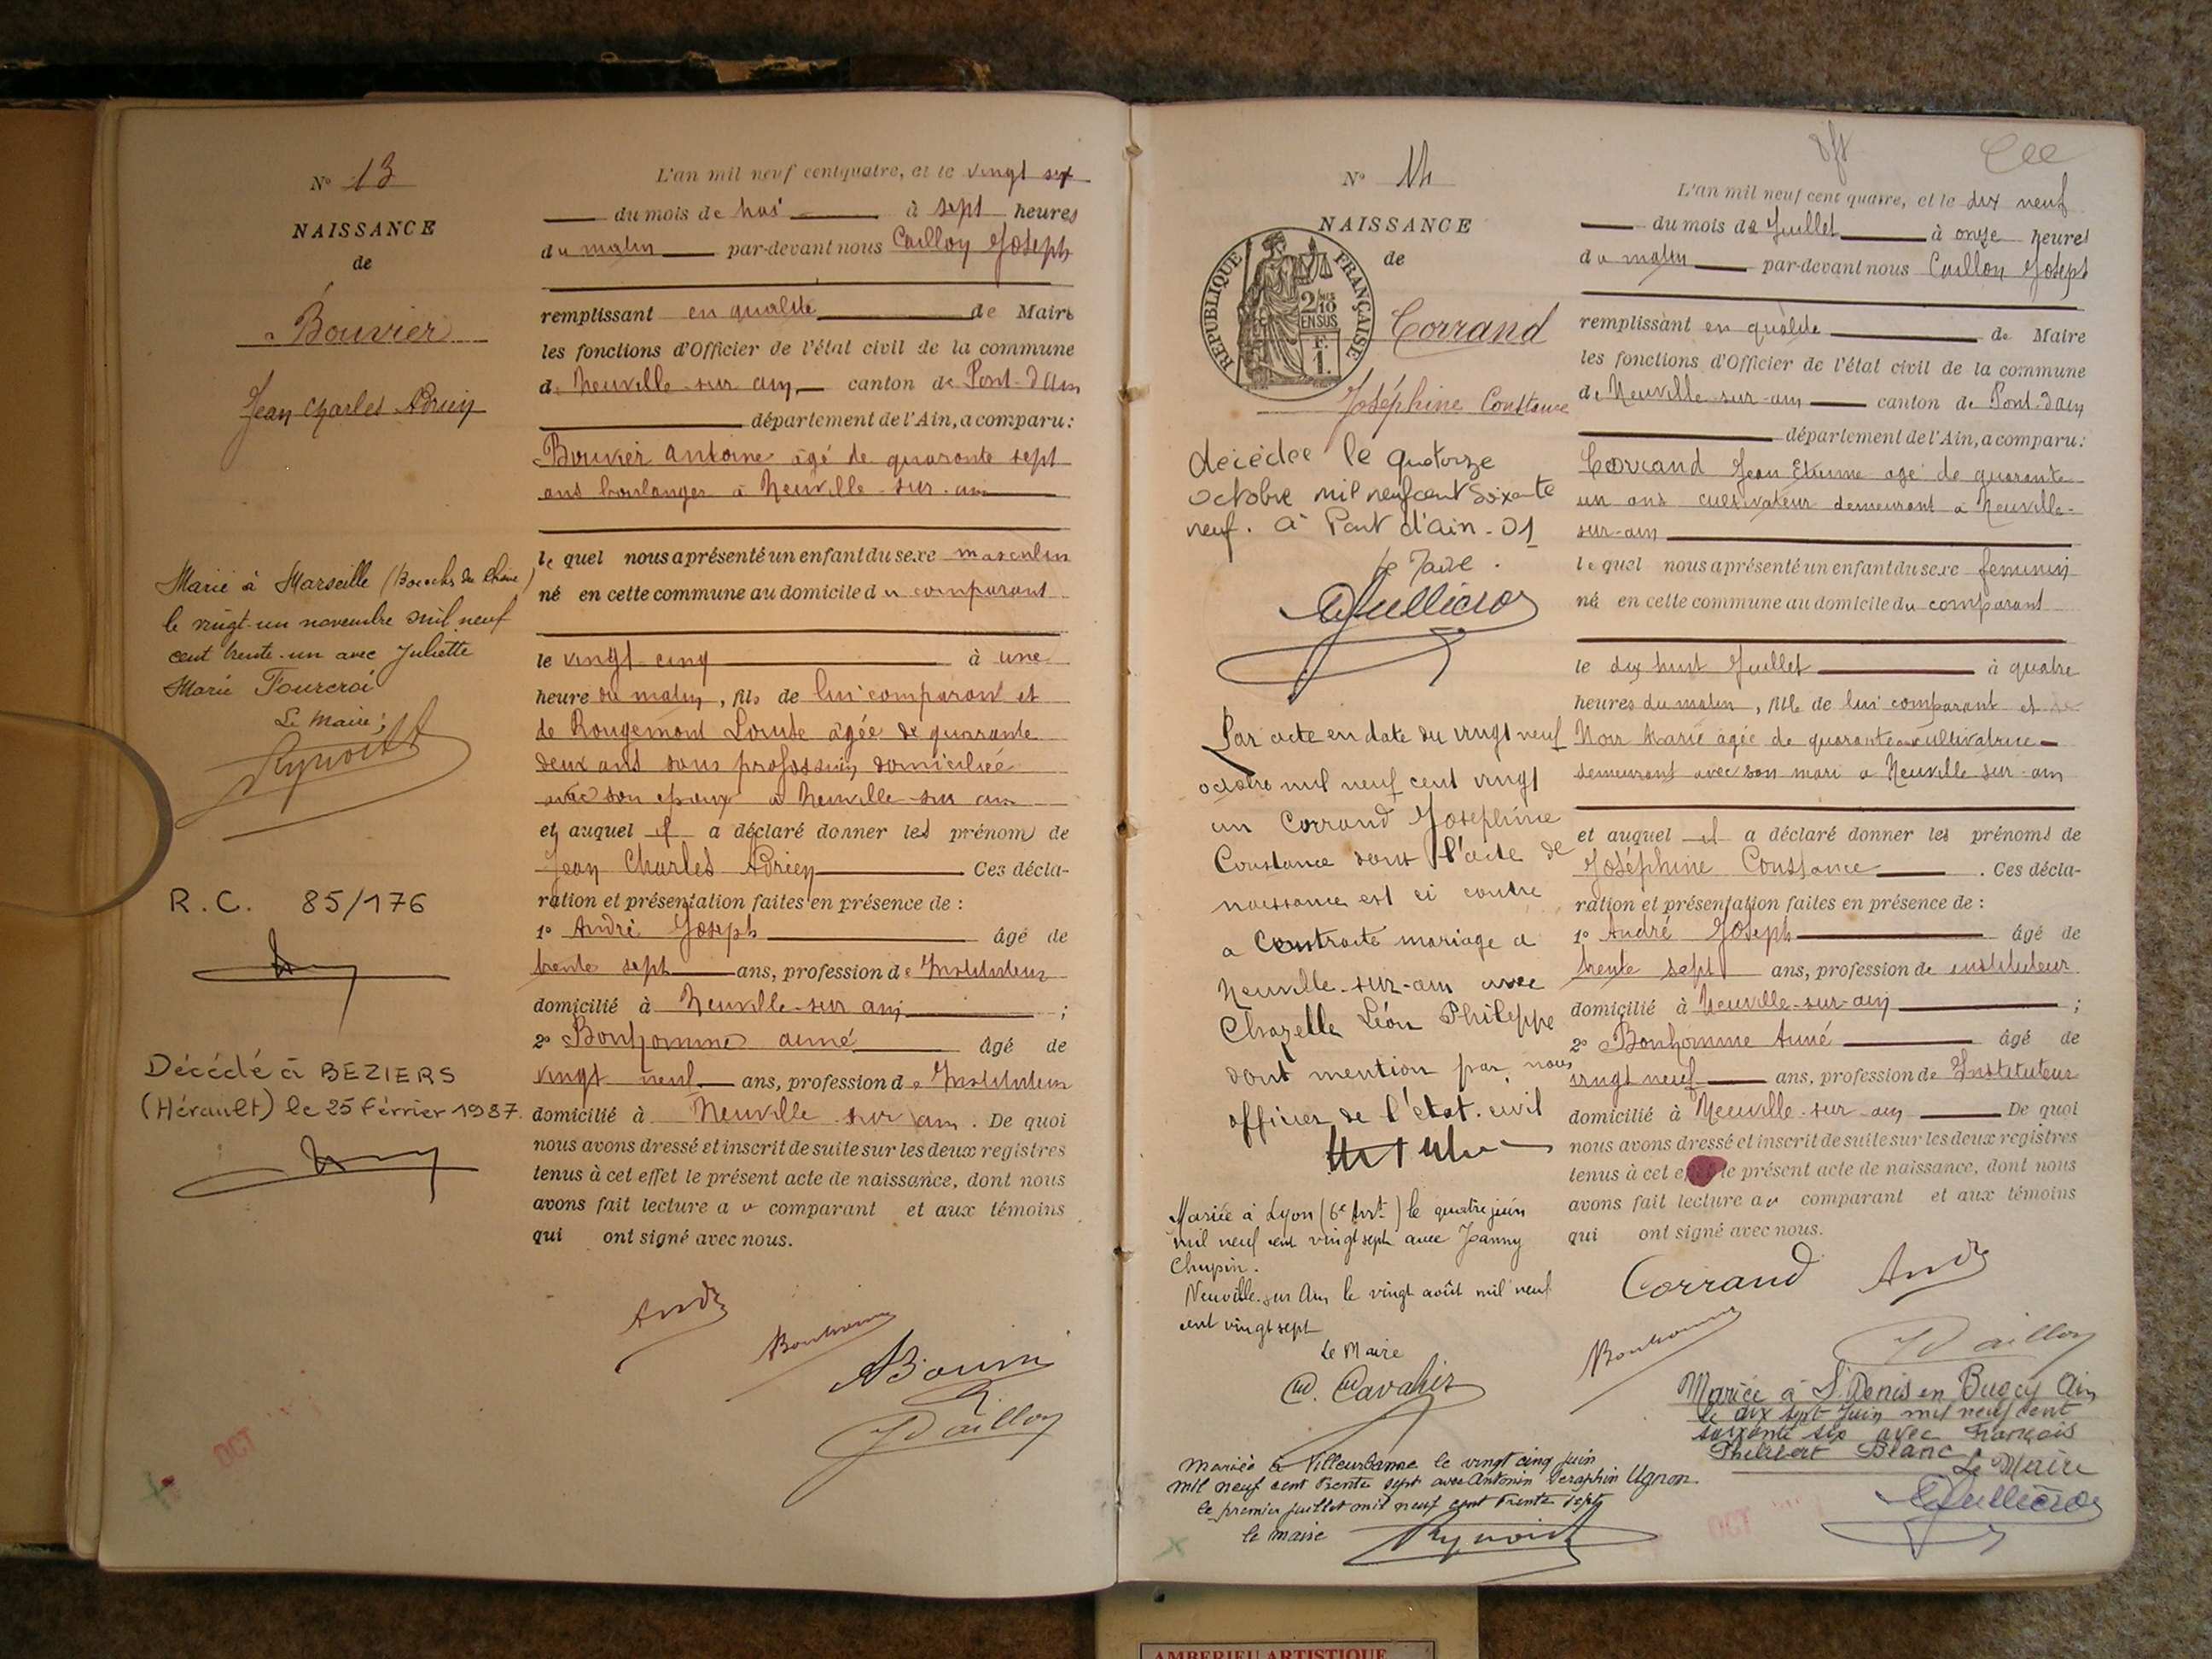 N° 13
NAISSANCE
de
Bouvier
Jean Charles Adrien
Marié à Marseille (Bouches du Rhône)
le vingt-un novembre mil neuf
cent trente-un avec Juliette
Marie Fourcroi
Le Maire;
R.C. 85/176
Décédé à BEZIERS
(Hérault) le 25 Février 1987.
L'an mil neuf cent quatre, et le vingt six
du mois de Mai à sept heures
du matin par-devant nous Cailloy Joseph
remplissant en qualité de Maire
les fonctions d'Officier de l'état civil de la commune
de Neuville-sur-ain canton de Pont-d'Ain
département de l'Ain, a comparu:
Bouvier Antoine âgé de quarante sept
ans boulanger à Neuville-sur-ain
le quel nous a présenté un enfant du sexe masculin
né en cette commune au domicile du comparant
le vingt-cinq à une
heure du matin, fils de lui comparant et
de Rougemont Louise âgée de quarante
deux ans sans profession domiciliée
avec son époux à Neuville-sur-ain
et auquel il a déclaré donner les prénoms de
Jean Charles Adrien Ces décla-
ration et présentation faites en présence de :
1° André Joseph âgé de
trente sept ans, profession de Instituteur
domicilié à Neuville-sur-ain ;
2° Bonhomme aimé âgé de
vingt neuf ans, profession de Instituteur
domicilié à Neuville sur ain. De quoi
nous avons dressé et inscrit de suite sur les deux registres
tenus à cet effet le présent acte de naissance, dont nous
avons fait lecture au comparant et aux témoins
qui ont signé avec nous.
André
Bonhomme
OCT
N° 14
NAISSANCE
de
REPUBLIQUE FRANÇAISE
2/10
EN SUS
F.
1.
Corrand
Joséphine Constance
décédée le quatorze
octobre mil neuf cent soixante
neuf. à Pont d'ain - 01
Le Maire.
Par acte en date du vingt neuf
octobre mil neuf cent vingt
un Corrand Joséphine
Constance dont l'acte de
naissance est ci contre
a Contracté mariage à
Neuville-sur-ain avec
Chazelle Léon Philippe
dont mention par nous
officier de l'état-civil
Mariée à Lyon (6e Arrt) le quatre juin
mil neuf cent vingt sept avec Joanny
Chupin.
Neuville-sur Ain, le vingt août mil neuf
cent vingt sept
Le Maire
Mariée à Villeurbanne le vingt cinq juin
mil neuf cent trente sept avec Antonin Seraphin Ugnon.
le premier juillet mil neuf cent trente sept
le maire
L'an mil neuf cent quatre, et le dix neuf
du mois de Juillet à onze heures
du matin par-devant nous Cailloy Joseph
remplissant en qualité de Maire
les fonctions d'Officier de l'état civil de la commune
de Neuville-sur-ain canton de Pont-d'ain
département de l'Ain, a comparu:
Corrand Jean Etienne âgé de quarante
un ans cultivateur demeurant à Neuville-
sur-ain
le quel nous a présenté un enfant du sexe féminin
né en cette commune au domicile du comparant
le dix huit Juillet à quatre
heures du matin, fille de lui comparant et de
Noir Marie âgée de quarante ans cultivatrice
demeurant avec son mari à Neuville sur-ain
et auquel il a déclaré donner les prénoms de
Joséphine Constance. Ces décla-
ration et présentation faites en présence de :
1° André Joseph âgé de
trente sept ans, profession de instituteur
domicilié à Neuville-sur-ain ;
2° Bonhomme Aimé âgé de
vingt neuf ans, profession de Instituteur
domicilié à Neuville-sur-ain De quoi
nous avons dressé et inscrit de suite sur les deux registres
tenus à cet le présent acte de naissance, dont nous
avons fait lecture au comparant et aux témoins
qui ont signé avec nous.
Corrand André
Bonhomme
Mariée à St Denis en Bugey Ain
le dix sept Juin mil neuf cent
soixante six avec François
Philibert Blanc
Le Maire
OCT
AMBERIEU ARTISTIQUE